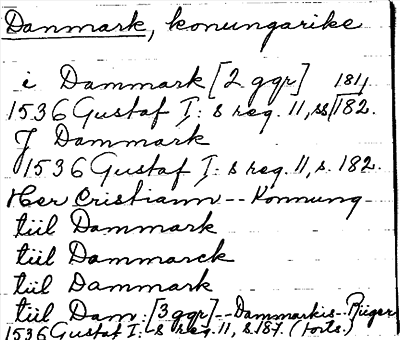 Danmark, konungarike
i Dammark [2 ggr] 181,
1536 Gustaf I: s reg. 11, ss 182.
J Dammark
1536 Gustaf I: s reg. 11, s. 182.
Her Cristiann -- Konnung
tiil Dammark
tiil Dammarck
tiil Dammark
tiil Dam: [3 ggr] -- Dammarkis -- Riiger
1536 Gustaf I: s reg. 11, s. 187. (forts.)